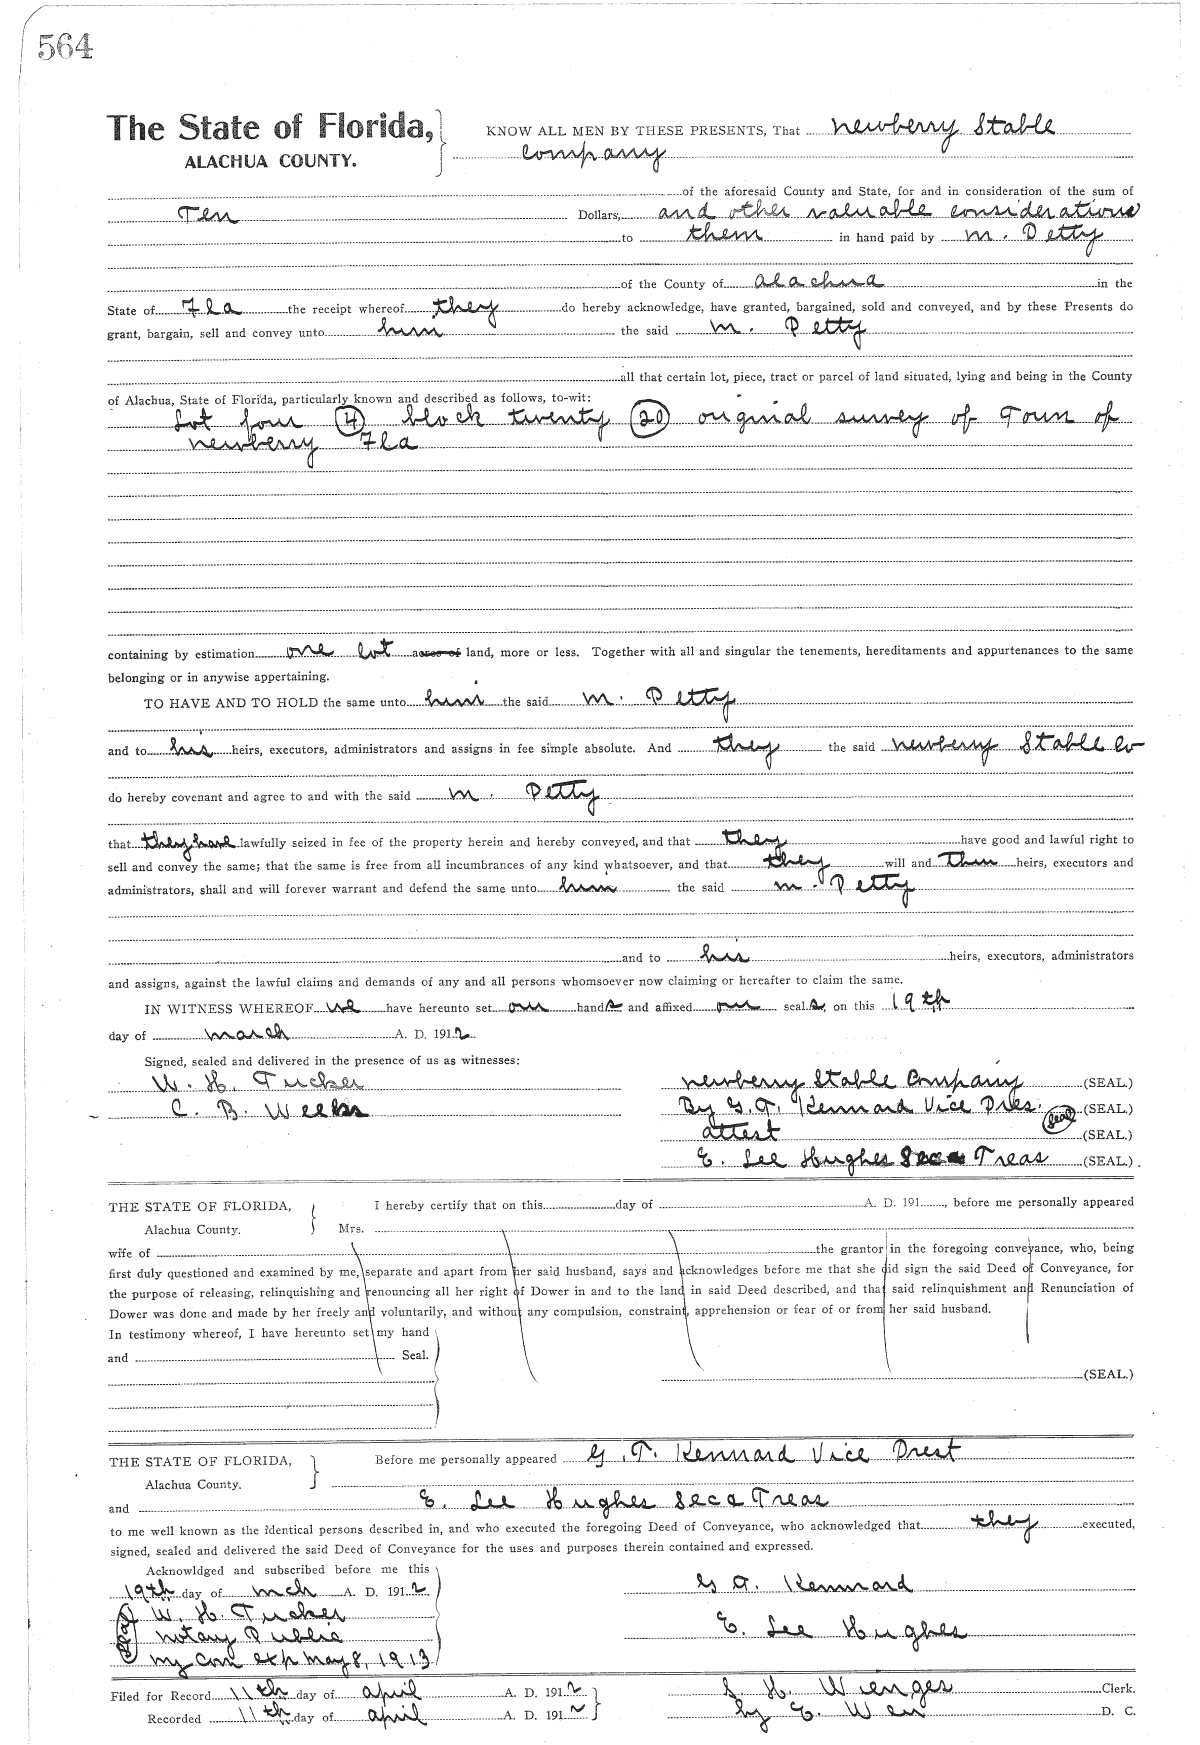 564
The State of Florida, KNOW ALL MEN BY THESE PRESENTS, That Newberry Stable
ALACHUA COUNTY. Company
of the aforesaid County and State, for and in consideration of the sum of
Ten Dollars, and other valuable considerations
to them in hand paid by M. Petty
of the County of Alachua in the
State of Fla the receipt whereof they do hereby acknowledge, have granted, bargained, sold and conveyed, and by these Presents do
grant, bargain, sell and convey unto him the said M. Petty
all that certain lot, piece, tract or parcel of land situated, lying and being in the County
of Alachua, State of Florida, particularly known and described as follows, to-wit:
Lot four (4) block twenty (20) original survey of Town of
Newberry Fla
containing by estimation one lot acres of land, more or less. Together with all and singular the tenements, hereditaments and appurtenances to the same
belonging or in anywise appertaining.
TO HAVE AND TO HOLD the same unto him the said M. Petty
and to his heirs, executors, administrators and assigns in fee simple absolute. And they the said Newberry Stable Co
do hereby covenant and agree to and with the said M. Petty
that they have lawfully seized in fee of the property herein and hereby conveyed, and that they have good and lawful right to
sell and convey the same; that the same is free from all incumbrances of any kind whatsoever, and that they will and their heirs, executors and
administrators, shall and will forever warrant and defend the same unto him the said M. Petty
and to his heirs, executors, administrators
and assigns, against the lawful claims and demands of any and all persons whomsoever now claiming or hereafter to claim the same.
IN WITNESS WHEREOF we have hereunto set our hands and affixed our seals, on this 19th
day of March A. D. 1912
Signed, sealed and delivered in the presence of us as witnesses:
W. H. Tucker Newberry Stable Company (SEAL.)
C. B. Weeks By G. T. Kennard Vice Pres. Seal (SEAL.)
attest (SEAL.)
E. Lee Hughes Sec & Treas (SEAL.)
THE STATE OF FLORIDA, I hereby certify that on this day of A. D. 191 , before me personally appeared
Alachua County. Mrs.
wife of the grantor in the foregoing conveyance, who, being
first duly questioned and examined by me, separate and apart from her said husband, says and acknowledges before me that she did sign the said Deed of Conveyance, for
the purpose of releasing, relinquishing and renouncing all her right of Dower in and to the land in said Deed described, and that said relinquishment and Renunciation of
Dower was done and made by her freely and voluntarily, and without any compulsion, constraint, apprehension or fear of or from her said husband.
In testimony whereof, I have hereunto set my hand
and Seal.
(SEAL.)
THE STATE OF FLORIDA, Before me personally appeared G. T. Kennard Vice Prest
Alachua County.
and E. Lee Hughes Sec & Treas
to me well known as the identical persons described in, and who executed the foregoing Deed of Conveyance, who acknowledged that they executed,
signed, sealed and delivered the said Deed of Conveyance for the uses and purposes therein contained and expressed.
Acknowldged and subscribed before me this
19th day of Mch A. D. 1912 G T. Kennard
Seal W. H. Tucker
Notary Public E. Lee Hughes
my com exp May 8, 1913
Filed for Record 11th day of April A. D. 1912 S. H. Wienges Clerk.
Recorded 11th day of April A. D. 1912 by E. D. C.